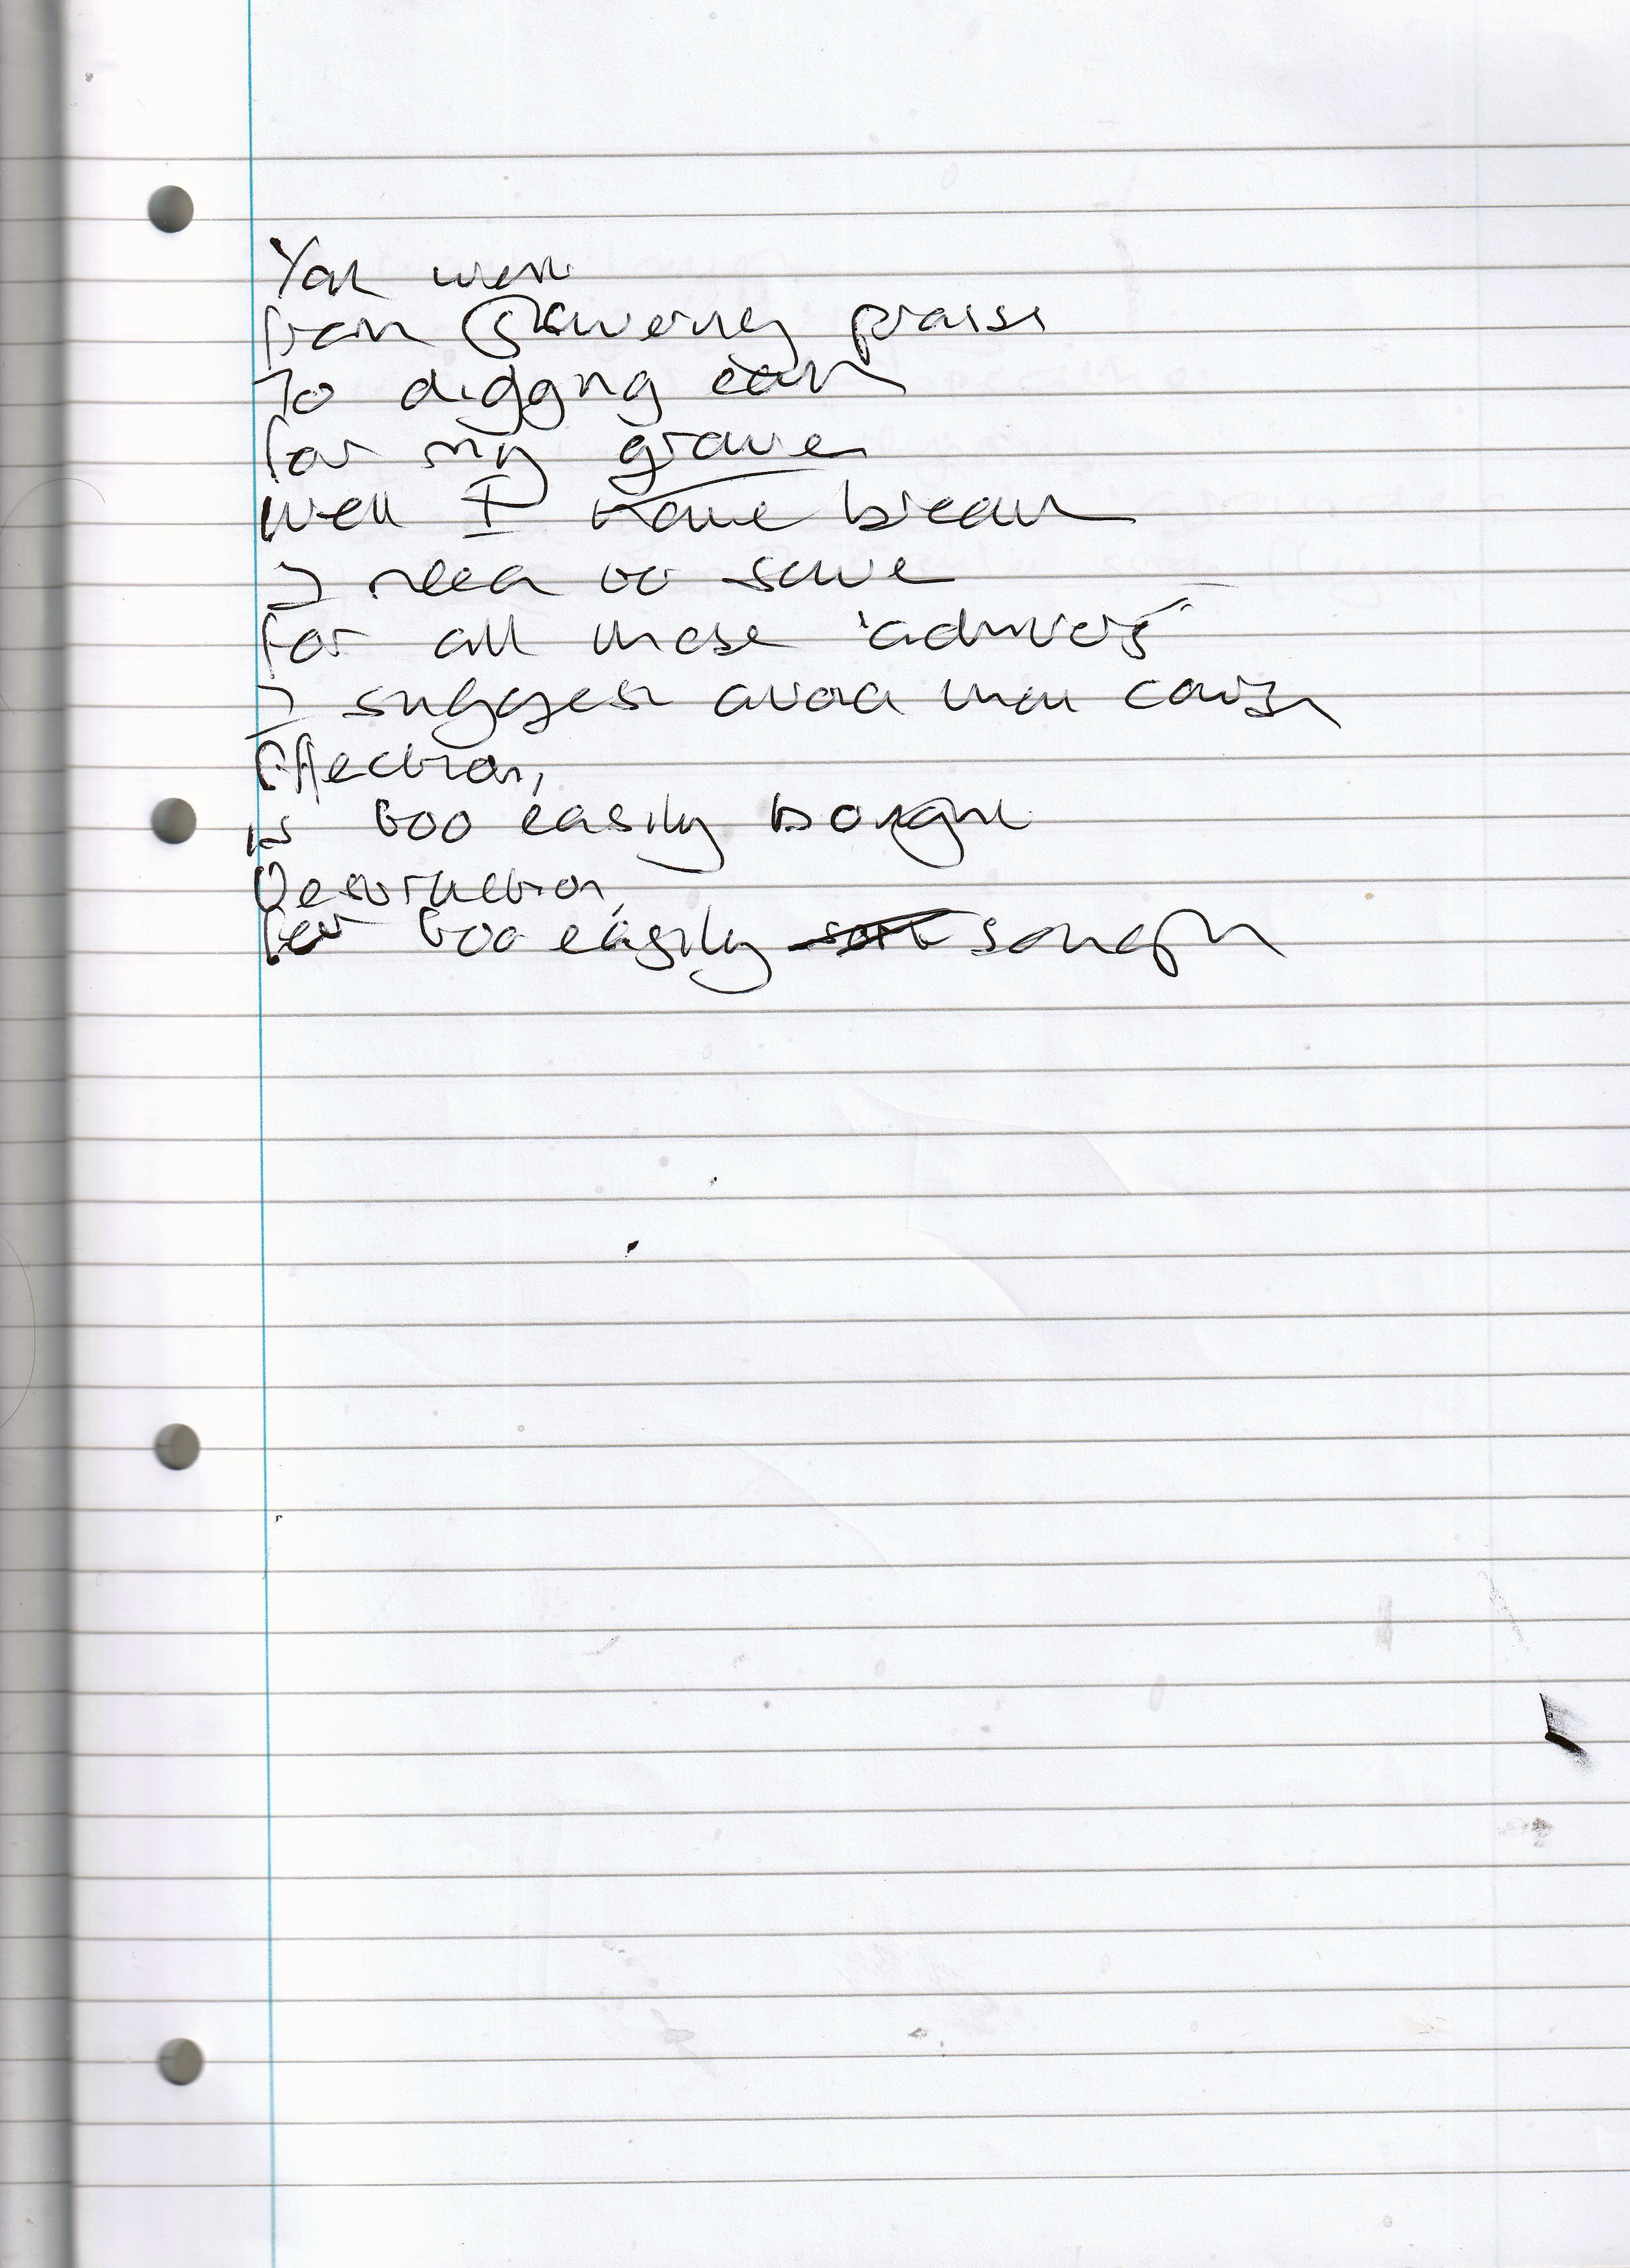 You went
from showering praise
To digging earth
for my grave
Well I have breath
I need to save
For all those 'admirers'
I suggest avoid that cause
Affection,
is too easily bought
Destruction,
far too easily sort sought